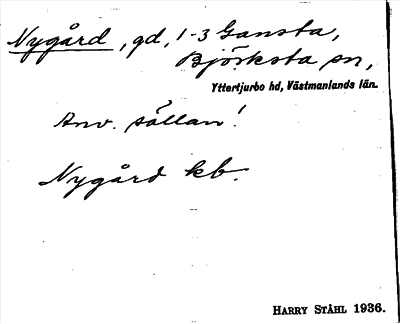 Nygård, gd, 1-3 Gansta,
Björksta sn,
Yttertjurbo hd, Västmanlands län.
Anv. sällan!
Nygård kb.
HARRY STÅHL 1936.